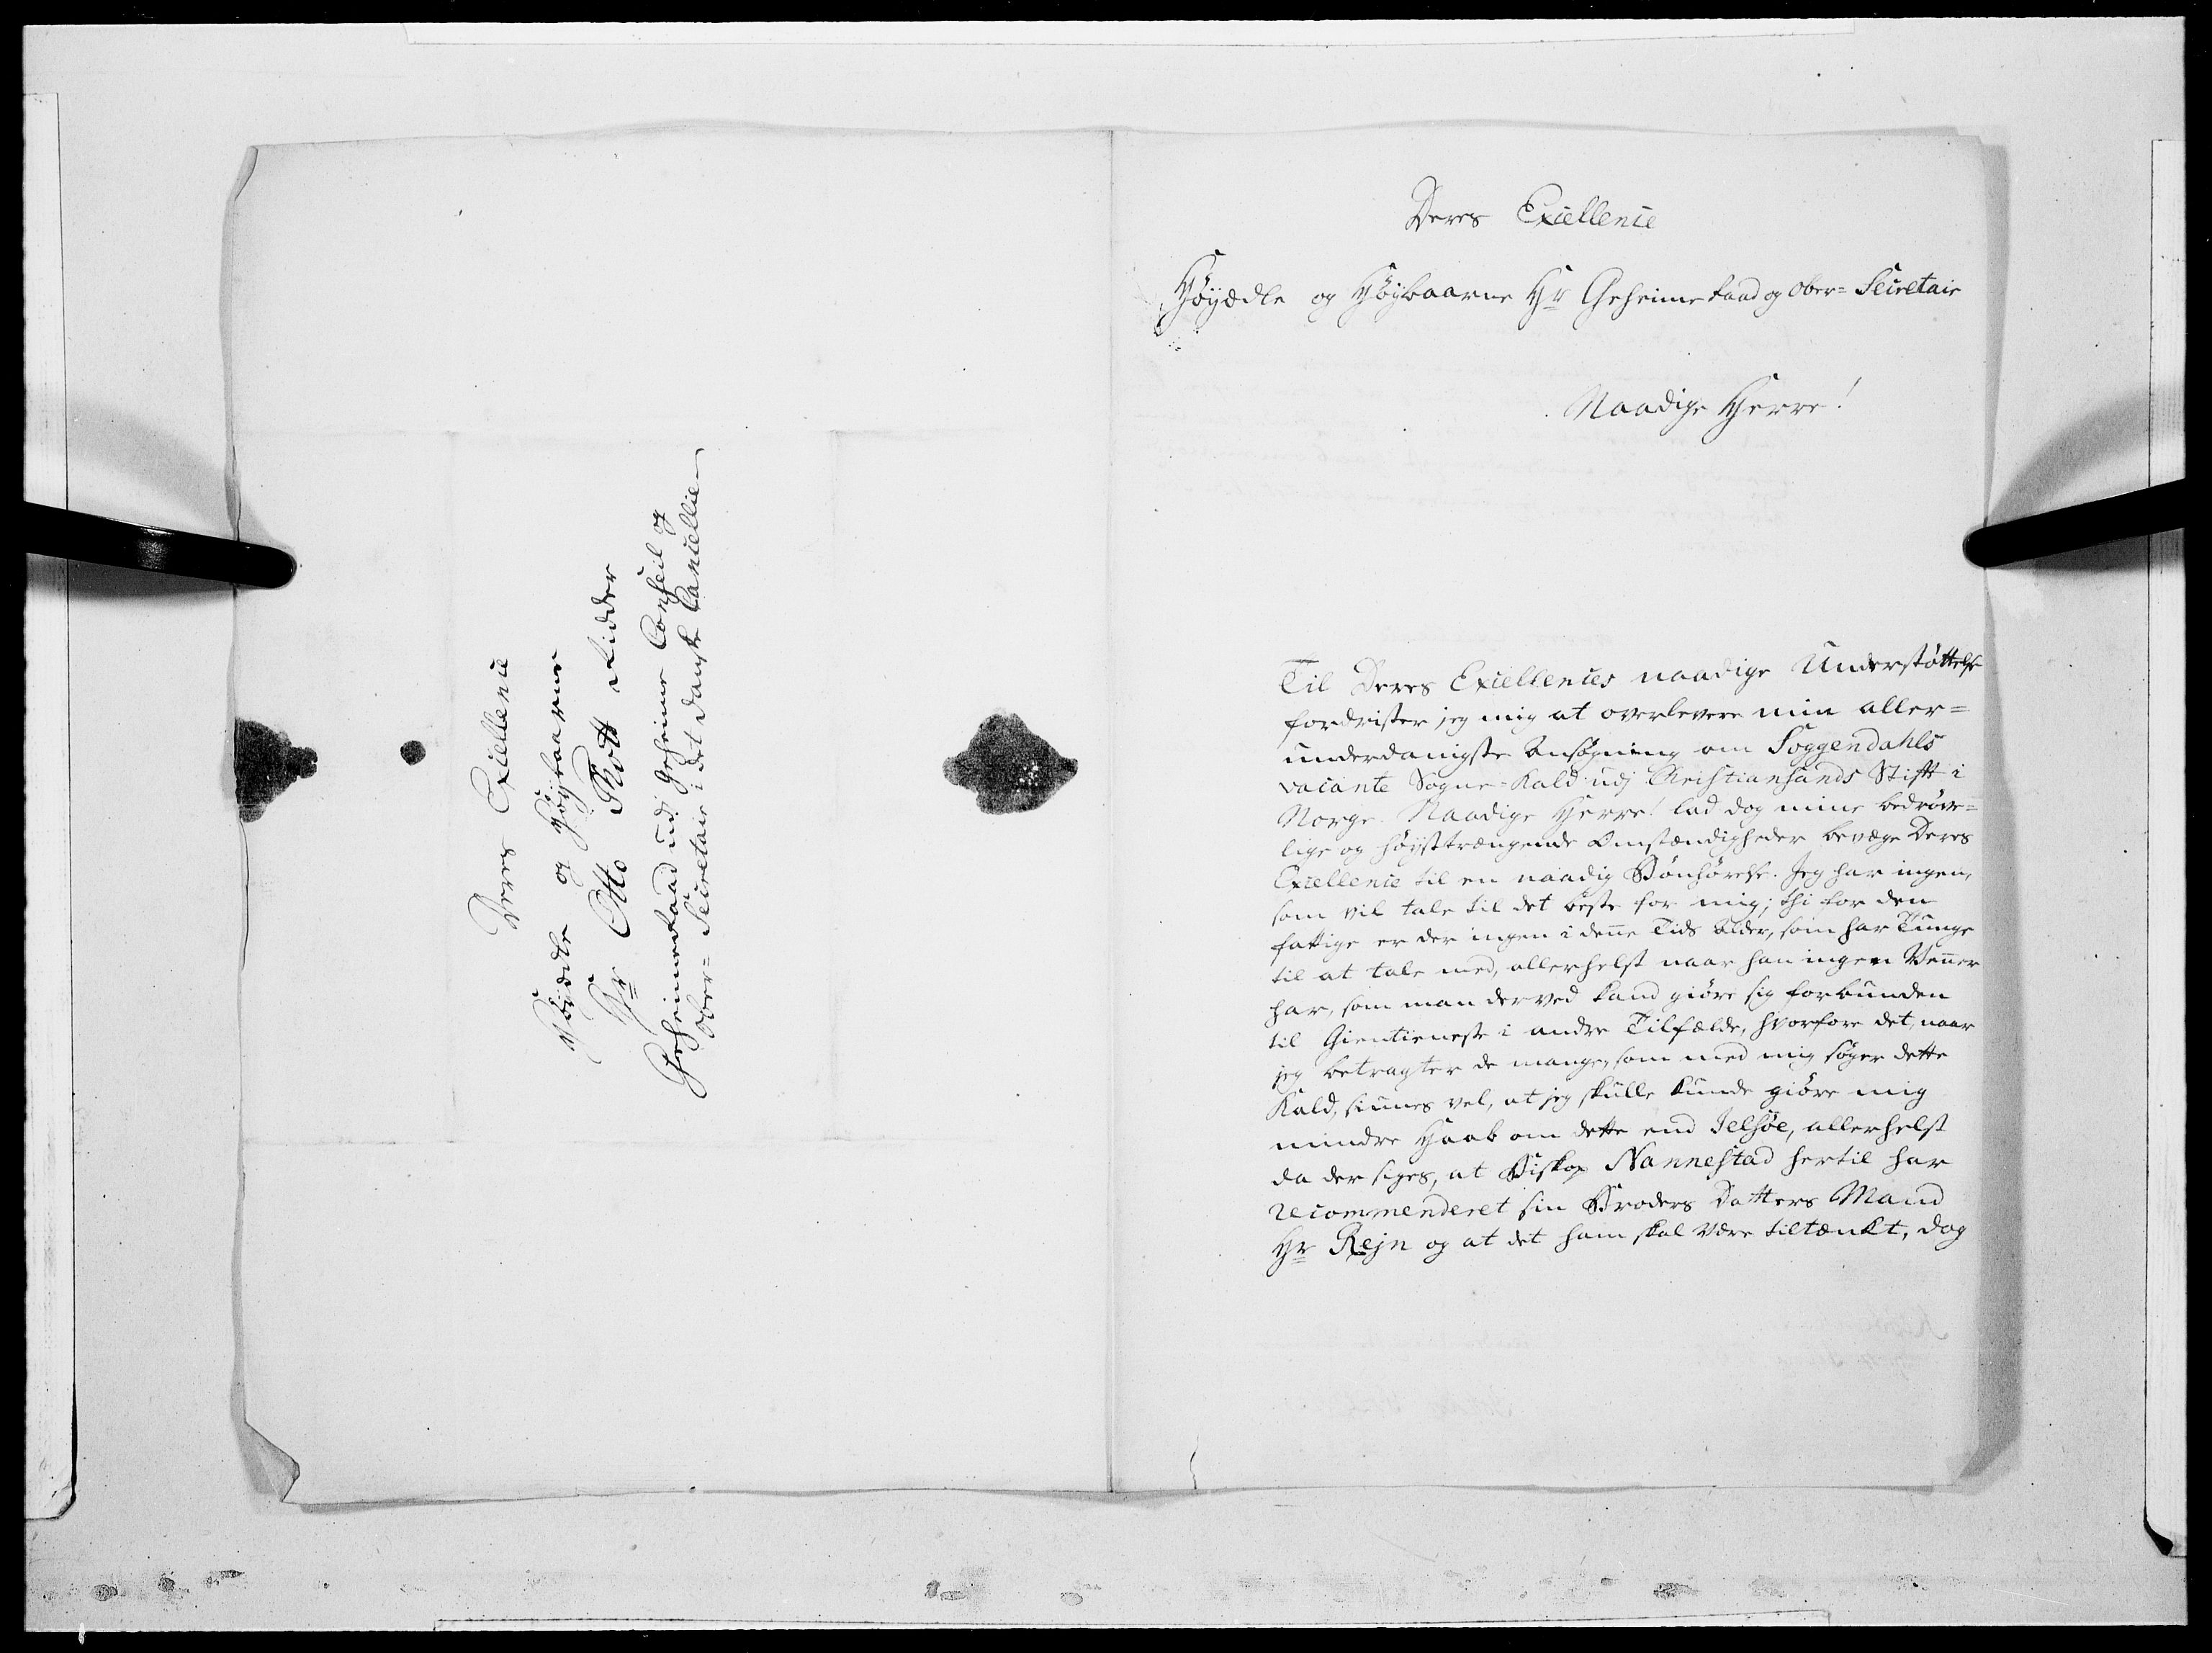 Deres Excellence
Høyædle og Høybaarne
Hr Otto Thott Ridder
Geheimeraad udj Geheime Conseil og
Ober-Secretair i det danske Cancellie
Deres Excellence
Høyædle og Høybaarne Hr Geheimeraad og Ober-Secretair
Naadige Herre!
Til Deres Excellences naadige Understøttelse
fordrister jeg mig at overlevere min aller-
underdanigste Ansøgning om Soggendahls
vacante Sogne-Kald udj Christiansands Stift i
Norge. Naadige Herre! lad dog mine bedrøve-
lige og høysttrængende Omstændigheder bevæge Deres
Excellence til en naadig Bønhørelse. Jeg har ingen,
som vil tale til det beste for mig; thi for den
fattige er der ingen i denne Tids Alder, som har Tunge
til at tale med, allerhelst naar han ingen Venner
har, som man derved kand giøre sig forbunden
til Gientieneste i andre Tilfælde, hvorfore det, naar
jeg betragter de mange, som med mig søger dette
Kald, siunes vel, at jeg skulle kunde giøre mig
mindre Haab om dette end Jelsøe, allerhelst
da der siges, at Biskop Nannestad hertil har
recommenderet sin Broders Datters Mand
Hr Rejn og at det ham skal være tiltænkt, dog